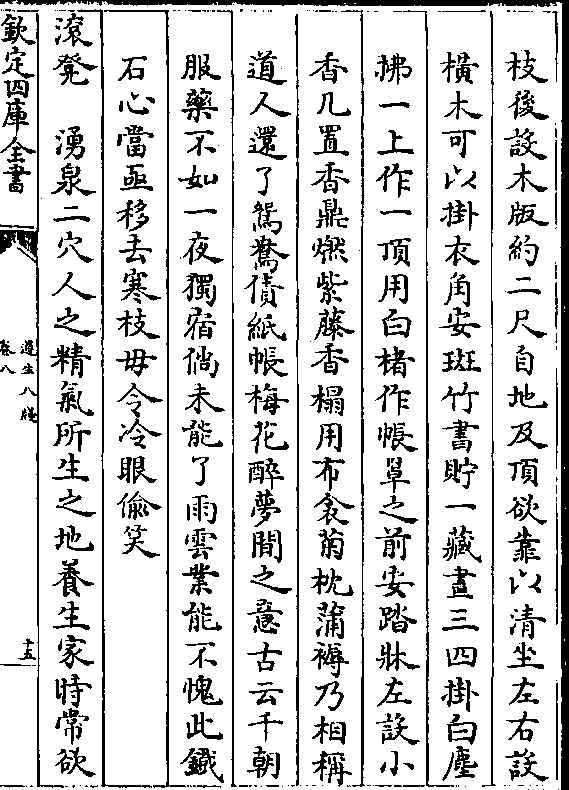 枝後設木版約二尺自地及頂欲靠以清坐左右設
橫木可以掛衣角安斑竹書貯一藏畫三四掛白麈
拂一上作一頂用白楮作帳罩之前安踏牀左設小
香几置香鼎燃紫藤香榻用布衾菊枕蒲褥乃相稱
道人還了鴛鴦債紙帳梅花醉夢間之意古云千朝
服藥不如一夜獨宿倘未能了雨雲業能不愧此鐵
石心當亟移去寒枝毋令冷眼偷笑
滾凳　湧泉二穴人之精氣所生之地養生家時常欲
欽定四庫全書
遵生八牋
卷八
十五